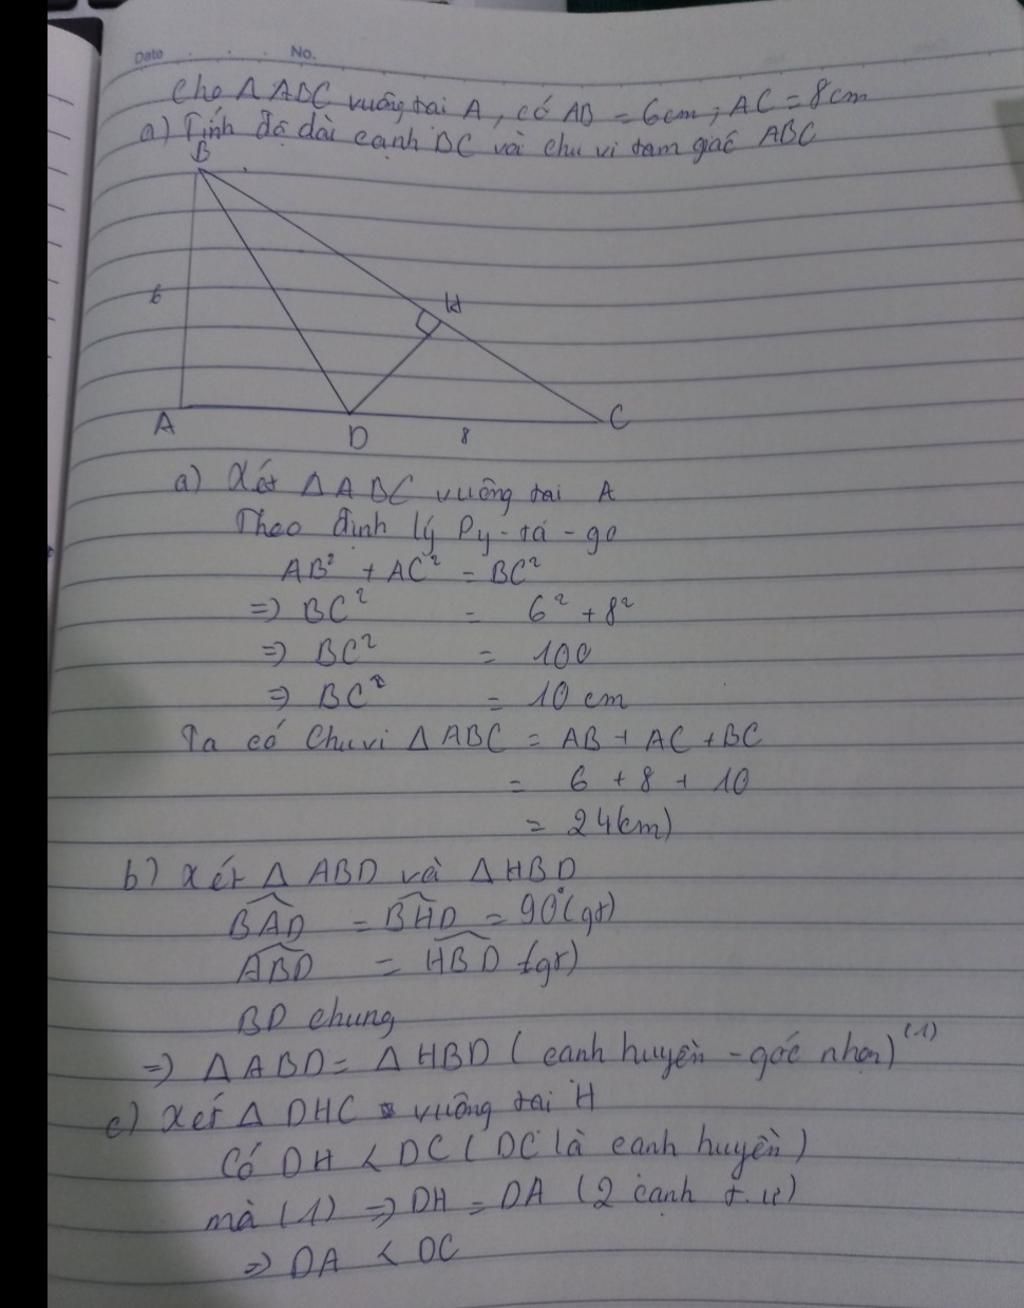 Date No.
Cho Δ ABC vuông tại A, có AB = 6cm; AC = 8cm
a) Tính độ dài cạnh BC và chu vi tam giác ABC
B
6
H
A
D
8
C
a) Xét Δ ABC vuông tại A
Theo định lý Py-ta-go
AB² + AC² = BC²
=> BC² = 6² + 8²
=> BC² = 100
=> BC² = 10 cm
Ta có Chu vi Δ ABC = AB + AC + BC
= 6 + 8 + 10
= 24(cm)
b) Xét Δ ABD và Δ HBD
BAD = BHD = 90°(gt)
ABD = HBD (gt)
BD chung
=> Δ ABD = Δ HBD (cạnh huyền - góc nhọn) (1)
c) Xét Δ DHC vuông tại H
Có DH < DC (DC là cạnh huyền)
mà (1) => DH = DA (2 cạnh t.ư)
=> DA < DC